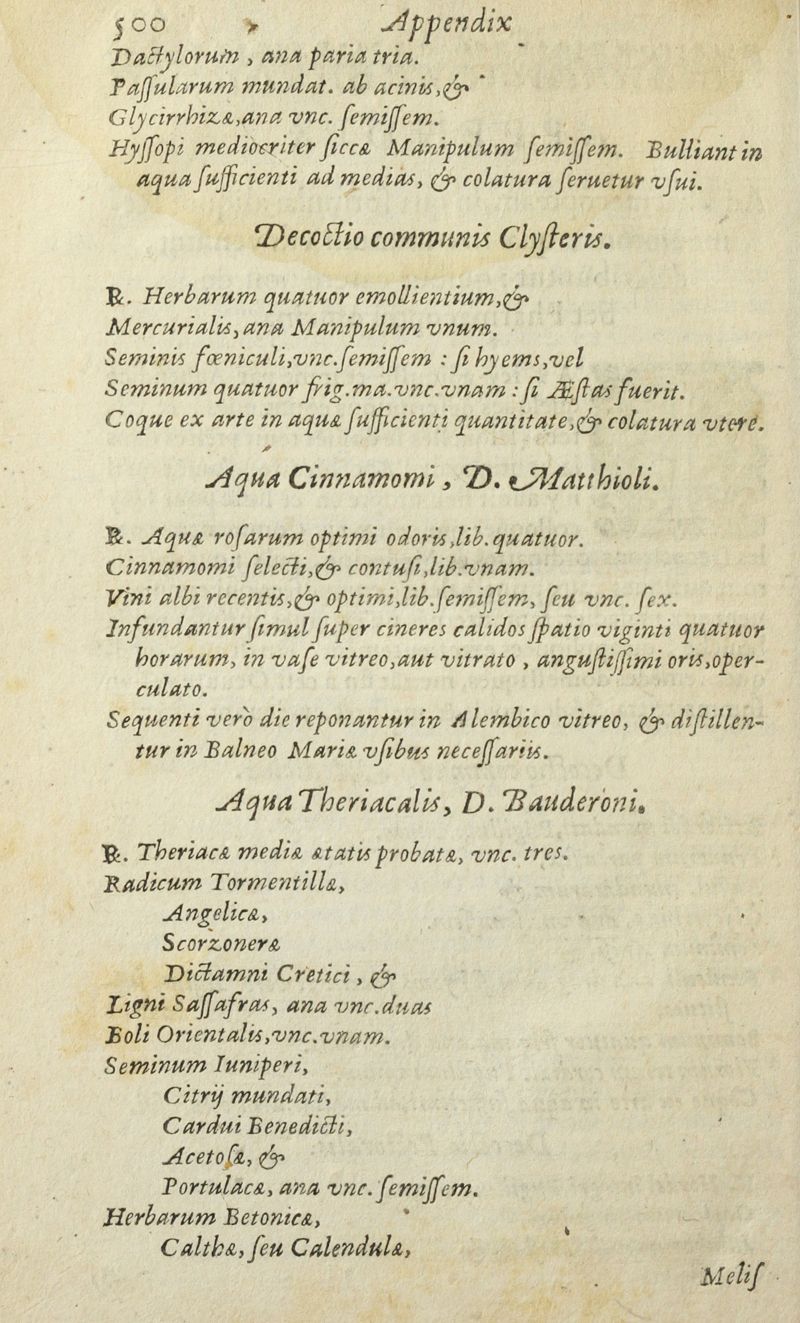 500 Appendix
Dactylorum , ana paria tria.
Paſſularum mundat. ab acinis,&
Glycirrhizæ,ana vnc. ſemiſſem.
Hyſſopi mediocriter ſiccæ Manipulum ſemiſſem. Bulliant in
aqua ſufficienti ad medias, & colatura ſeruetur vſui.
Decoctio communis Clyſteris.
℞. Herbarum quatuor emollientium,&
Mercurialis, ana Manipulum vnum.
Seminis fœniculi,vnc.ſemiſſem : ſi hyems,vel
Seminum quatuor frig.ma.vnc.vnam : ſi Æſtas fuerit.
Coque ex arte in aquæ ſufficienti quantitate,& colatura vtere.
Aqua Cinnamomi , D. Matthioli.
℞. Aquæ roſarum optimi odoris,lib.quatuor.
Cinnamomi ſelecti,& contuſi,lib.vnam.
Vini albi recentis,& optimi,lib.ſemiſſem, ſeu vnc. ſex.
Infundantur ſimul ſuper cineres calidos ſpatio viginti quatuor
horarum, in vaſe vitreo,aut vitrato , anguſtiſſimi oris,oper-
culato.
Sequenti verò die reponantur in Alembico vitreo, & diſtillen-
tur in Balneo Mariæ vſibus neceſſariis.
Aqua Theriacalis, D. Bauderòni.
℞. Theriacæ mediæ ætatis probatæ, vnc. tres.
Radicum Tormentillæ,
Angelicæ,
Scorzoneræ
Dictamni Cretici , &
Ligni Saſſafras, ana vnc.duas
Boli Orientalis,vnc.vnam.
Seminum Iuniperi,
Citrij mundati,
Cardui Benedicti,
Acetoſæ, &
Portulacæ, ana vnc. ſemiſſem.
Herbarum Betonicæ,
Calthæ, ſeu Calendulæ,
Meliſ